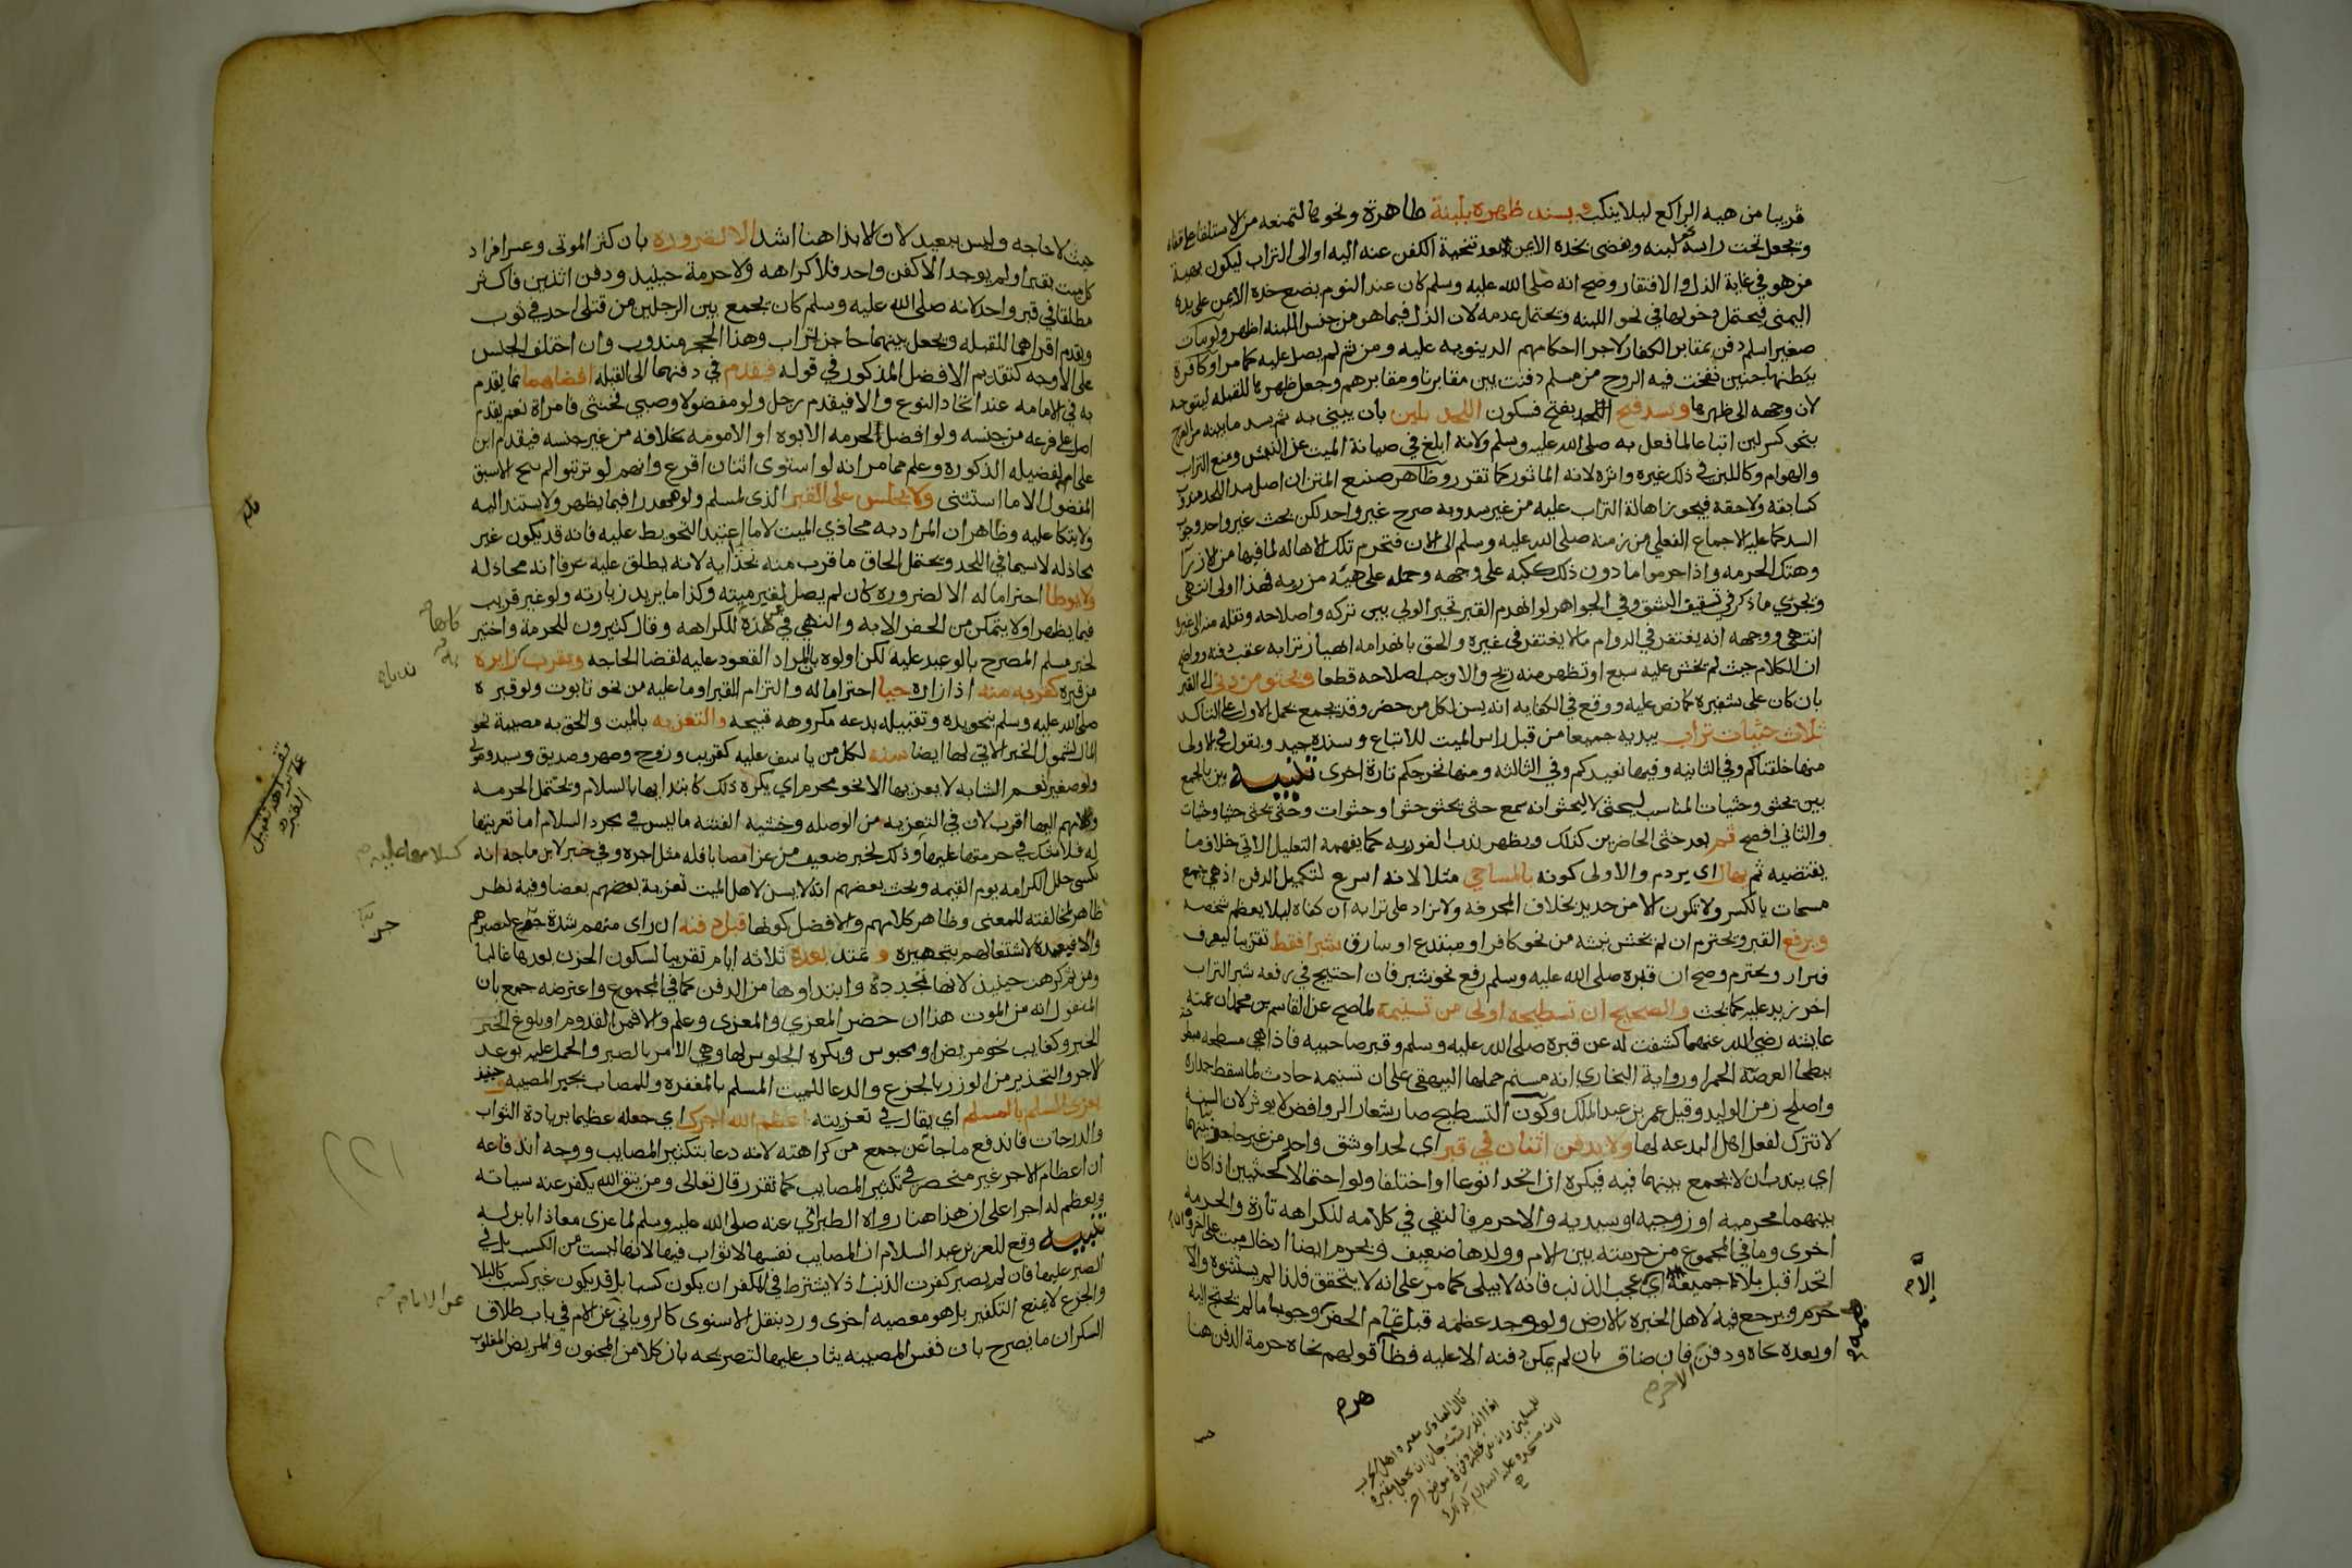 قريبا من هيه الراكع ليلا ينكب ويسند ظهره بلبنة طاهرة ونحوها لتمنعه من الاستلقا على قفاه
ويجعل تحت راسه نحو لبنه ويفضى بخده الايمن بعد تنحية الكفن عنه اليه او الى التراب ليكون بهيئة
من هو في غاية الذل والافتقار وصح انه صلى الله عليه وسلم كان عند النوم يضع خده الايمن على يده
اليمنى فيحتمل دخولها في نحو اللبنه ويحتمل عدمه لان الذل فيما هو من جنس اللبنه اظهر ولو مات
صغير اسلم دفن بمقابر الكفار لاجرا احكامهم الدينويه عليه ومن ثم لم يصل عليه كما مر او كافرة
ببطنها جنين نفخت فيه الروح من مسلم دفنت بين مقابرنا ومقابرهم وجعل ظهرها للقبله ليتوجه
لان وجهه الى ظهرها ويسد فتح اللحد بفتح فسكون اللحد بلبن بان يبنى به ثم يسد ما بينه من الفرج
بنحو كسر لبن اتباعا لما فعل به صلى الله عليه وسلم ولانه ابلغ في صيانة الميت عن النبش ومنع التراب
والهوام وكاللبن في ذلك غيره واثره لانه الماثور كما تقرر وظاهر صنيع المتن ان اصل سد اللحد مندوب
كسابقه ولاحقه فيجوز اهالة التراب عليه من غير سد وبه صرح غير واحد لكن بحث غير واحد وجوب
السد كما عليه الاجماع الفعلي من زمنه صلى الله عليه وسلم الى الان فتحرم تلك الاهاله لما فيها من الازرا
وهتك الحرمه واذا حرموا ما دون ذلك ككبه على وجهه وحمله على هيئه مزريه فهذا اولى انتهى
ويجري ما ذكر في تسقيف الشق وفي الجواهر لو انهدم القبر تخير الولي بين تركه واصلاحه ونقله منه الى غيره
انتهى ووجهه انه يغتفر في الدوام ما لا يغتفر في غيره والحق بانهدامه انهيار ترابه عقب دفنه وواضح
ان الكلام حيث لم يخش عليه سبع او تظهر منه ريح والا وجب اصلاحه قطعا ويحثو من دنى الى القبر
بان كان على شفيره كما نص عليه ووقع في الكفايه انه يسن لكل من حضر وقد يجمع بحمل الاول على التاكد
ثلاث حثيات تراب بيديه جميعا من قبل راس الميت للاتباع وسنده جيد ويقول في الاولى
منها خلقناكم وفي الثانيه وفيها نعيدكم وفي الثالثه ومنها نخرجكم تارة اخرى تنبيه
بين يحثو وحثيات المناسب ليحثى لا ليحثو انه سمع حثى يحثو حثوا وحثوات وحثى يحثى حثيا وحثيات
والثاني افصح ثم بعد حثى الحاضرين كذلك ويظهر ندب الفوريه كما يفهمه التعليل الاتي خلاف ما
يقتضيه ثم يهال اي يردم والاولى كونه بالمساحي مثلا لانه اسرع لتكميل الدفن اذ هي جمع
مسحات بالكسر ولا تكون الا من حديد بخلاف المجرفه ولا يزاد على ترابه ان كفاه ليلا يعظم شخصه
ويرفع القبر ويحترم ان لم يخش نبشه من نحو كافر او مبتدع او سارق شبرا فقط تقريبا ليعرف
فيزار ويحترم وصح ان قبره صلى الله عليه وسلم رفع نحو شبر فان احتيج في رفعه شبر التراب
اخر زيد عليه كما بحث والصحيح ان تسطيحه اولى من تسنيمه لما صح عن القاسم بن محمد ان عمته
عايشه رضي الله عنهما كشفت له عن قبره صلى الله عليه وسلم وقبر صاحبيه فاذا هي مسطحه
ببطحا العرصة الحمرا ورواية البخاري انه مسنم حملها البيهقي على ان تسنيمه حادث لما سقط جداره
واصلح زمن الوليد وقيل عمر بن عبد الملك وكون التسطيح صار شعار الروافض لا يوثر لان السنه
لا تترك لفعل اهل البدعه لها ولا يدفن اثنان في قبر اي لحد او شق واحد من غير حاجز بينهما
اي يندب ان لا يجمع بينهما فيه فيكره ان اتحدا نوعا او اختلفا ولو احتمالا كخنثيين اذا كان
بينهما محرميه او زوجيه او سيديه والا حرم فالنفي في كلامه للكراهه تارة والحرمه
اخرى وما في المجموع من حرمته بين الام وولدها ضعيف ويحرم ايضا ادخال ميت على اخر وان
اتحدا قبل بلا جميعه اي عجب الذنب فانه لا يبلى كما مر على انه لا يتحقق فلذا لم يستثنوه والا
حرم ويرجع فيه لاهل الخبره بالارض ولو وجد عظمه قبل تمام الحفر وجب ما لم يحتج اليه
او بعده نحاه ودفن فان ضاق بان لم يمكن دفنه الا عليه فظاهر قولهم نحاه حرمة الدفن هنا
هرم
الاخرم
إلاّم
حيث لا حاجه وليس ببعيد لان الايذا هنا اشد الا لضروره بان كثر الموتى وعسر افراد
كل ميت بقبر او لم يوجد الا كفن واحد فلا كراهه ولا حرمة حينيد ودفن اثنين فاكثر
مطلقا في قبر واحد لانه صلى الله عليه وسلم كان يجمع بين الرجلين من قتلى احد في ثوب
ويقدم اقراهما للقبله ويجعل بينهما حاجز تراب وهذا الحجز مندوب وان اختلف الجنس
على الاوجه كتقديم الافضل المذكور في قوله فيقدم في دفنهما الى القبله افضلهما بما يقدم
به في الامامه عند اتحاد النوع والا فيقدم رجل ولو مفضولا وصبي فخنثى فامراة نعم يقدم
اصل على فرعه من جنسه ولو افضل لحرمه الابوه او الامومه بخلافه من غير جنسه فيقدم ابن
على امه لفضيله الذكوره وعلم مما مر انه لو استوى اثنان اقرع وانهم لو ترتبوا لم ينح الاسبق
المفضول الا ما استثنى ولا يجلس على القبر الذى لمسلم ولو مهدرا فيما يظهر ولا يستند اليه
ولا يتكا عليه وظاهر ان المراد به محاذي الميت لا ما اعتيد التحويط عليه فانه قد يكون غير
محاذ له لاسيما في اللحد ويحتمل الحاق ما قرب منه بمحاذيه لانه يطلق عليه عرفا انه محاذ له
ولا يوطا احتراما له الا لضروره كان لم يصل لقبر ميته وكذا ما يريد زيارته ولو غير قريب
فيما يظهر او لا يتمكن من الحفر الا به والنهي في هذه للكراهه وقال كثيرون للحرمة واختير
لخبر مسلم المصرح بالوعيد عليه لكن اولوه بان المراد القعود عليه لقضا الحاجه ويقرب زايره
من قبره كقربه منه اذا زاره حيا احتراما له والتزام القبر او ما عليه من نحو تابوت ولو قبره
صلى الله عليه وسلم بنحو يده وتقبيله بدعه مكروهه قبيحه والتعزيه بالميت والحق به مصيبة نحو
المال لشمول الخبر الاتي لها ايضا سنه لكل من ياسف عليه كقريب وزوج وصهر وصديق وسيد ومولى
ولو صغيرا نعم الشابه لا يعزيها الا نحو محرم اي يكره ذلك كابتدايها بالسلام ويحتمل الحرمه
وكلامهم اليها اقرب لان في التعزيه من الوصله وخشيه الفتنه ما ليس في مجرد السلام اما تعزيتها
له فلا شك في حرمتها عليها وذلك لخبر ضعيف من عزا مصابا فله مثل اجره وفي خبر لابن ماجه انه
يكسى حلل الكرامه يوم القيمه وبحث بعضهم انه لا يسن لاهل الميت تعزية بعضهم بعضا وفيه نظر
ظاهر لمخالفته للمعنى وظاهر كلامهم والافضل كونها قبل دفنه ان راى منهم شدة جزع ليصبرهم
والا فبعده لاشتغالهم بتجهيزه و تمتد بعده ثلاثه ايام تقريبا لسكون الحزن بعدها غالبا
ومن ثم كرهت حينيذ لانها تجدده وابتداوها من الدفن كما في المجموع واعترضه جمع بان
المنقول انه من الموت هذا ان حضر المعزي والمعزى وعلم والا فمن القدوم او بلوغ الخبر
الخبر وكغايب نحو مريض او محبوس ويكره الجلوس لها وهي الامر بالصبر والحمل عليه بوعد
الاجر والتحذير من الوزر بالجزع والدعا للميت المسلم بالمغفره وللمصاب بجبر المصيبه حينيذ
يعزى المسلم بالمسلم اي يقال في تعزيته اعظم الله اجرك اي جعله عظيما بزيادة الثواب
والدرجات فاندفع ما جا عن جمع من كراهته لانه دعا بتكثير المصايب ووجه اندفاعه
ان اعظام الاجر غير منحصر في تكثير المصايب كما تقرر قال تعالى ومن يتق الله يكفر عنه سياته
ويعظم له اجرا على ان هذا هنا رواه الطبراني عنه صلى الله عليه وسلم لما عزى معاذا بابن له
تنبيه وقع للعز بن عبد السلام ان المصايب نفسها لا ثواب فيها لانها ليست من الكسب بل في
الصبر عليها فان لم يصبر كفرت الذنب اذ لا يشترط في المكفر ان يكون كسبا بل قد يكون غير كسب كالبلا
والجزع لا يمنع التكفير بل هو معصيه اخرى ورد بنقل الاسنوى كالروياني عن الام في باب طلاق
السكران ما يصرح بان نفس المصيبه يثاب عليها لتصريحه بان كلا من المجنون والمريض المغلوب